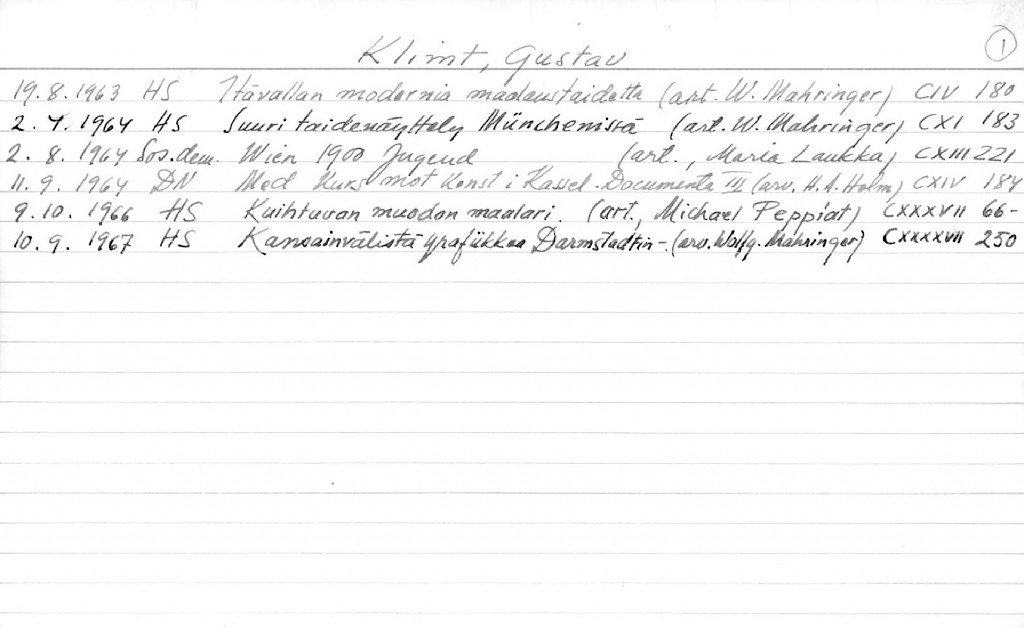 Klimt, Gustav 1
19.8.1963 HS Itävallan modernia maalaustaidetta (art. W. Mahringer) CIV 180
2.4.1964 HS Suuri taidenäyttely Münchenissä (art. W. Mahringer) CXI 183
2.8.1964 Sos.dem. Wien 1900 Jugend (art., Maria Laukka) CXIII 221
11.9.1964 DN Med kurs mot konst i Kassel. Documenta III (arv. H.A. Holm) CXIV 184
9.10.1966 HS Kuihtuvan muodon maalari. (art., Michael Peppiat) CXXXVII 66-
10.9.1967 HS Kansainvälistä grafiikkaa Darmstadtin-. (arv. Wolfg. Mahringer) CXXXXVII 250